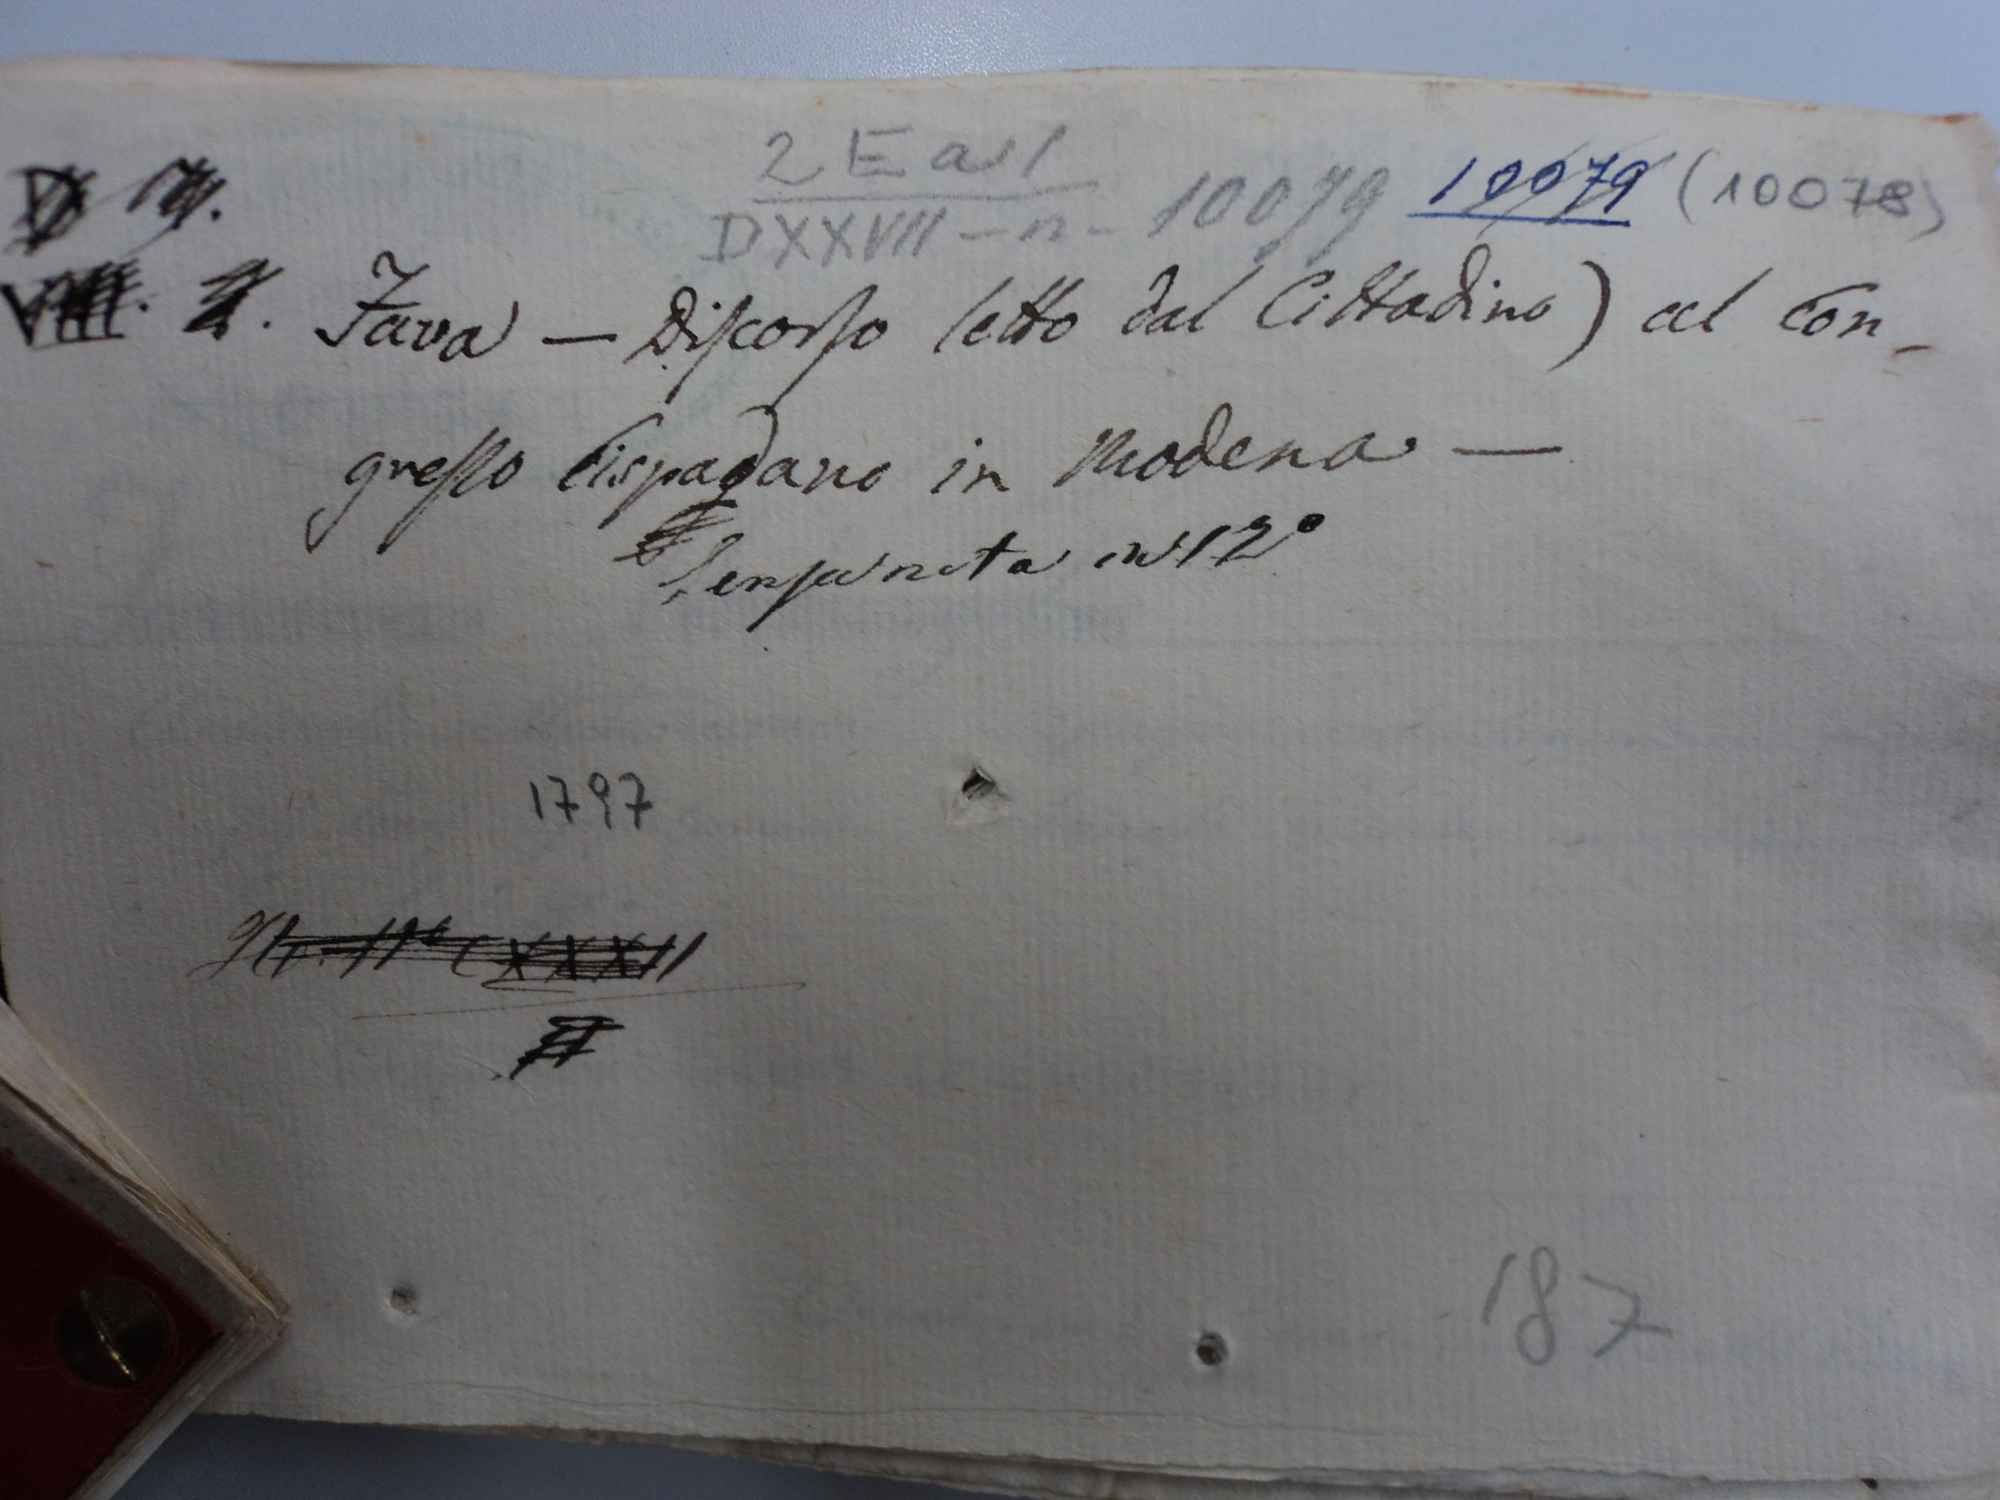 2 E a 1
DXXVII - n - 10079 10079 (10078)
Fava — Discorso letto dal Cittadino) al Con-
gresso Cispadano in Modena —
Senza nota in 12°
1797
CXXXII
187